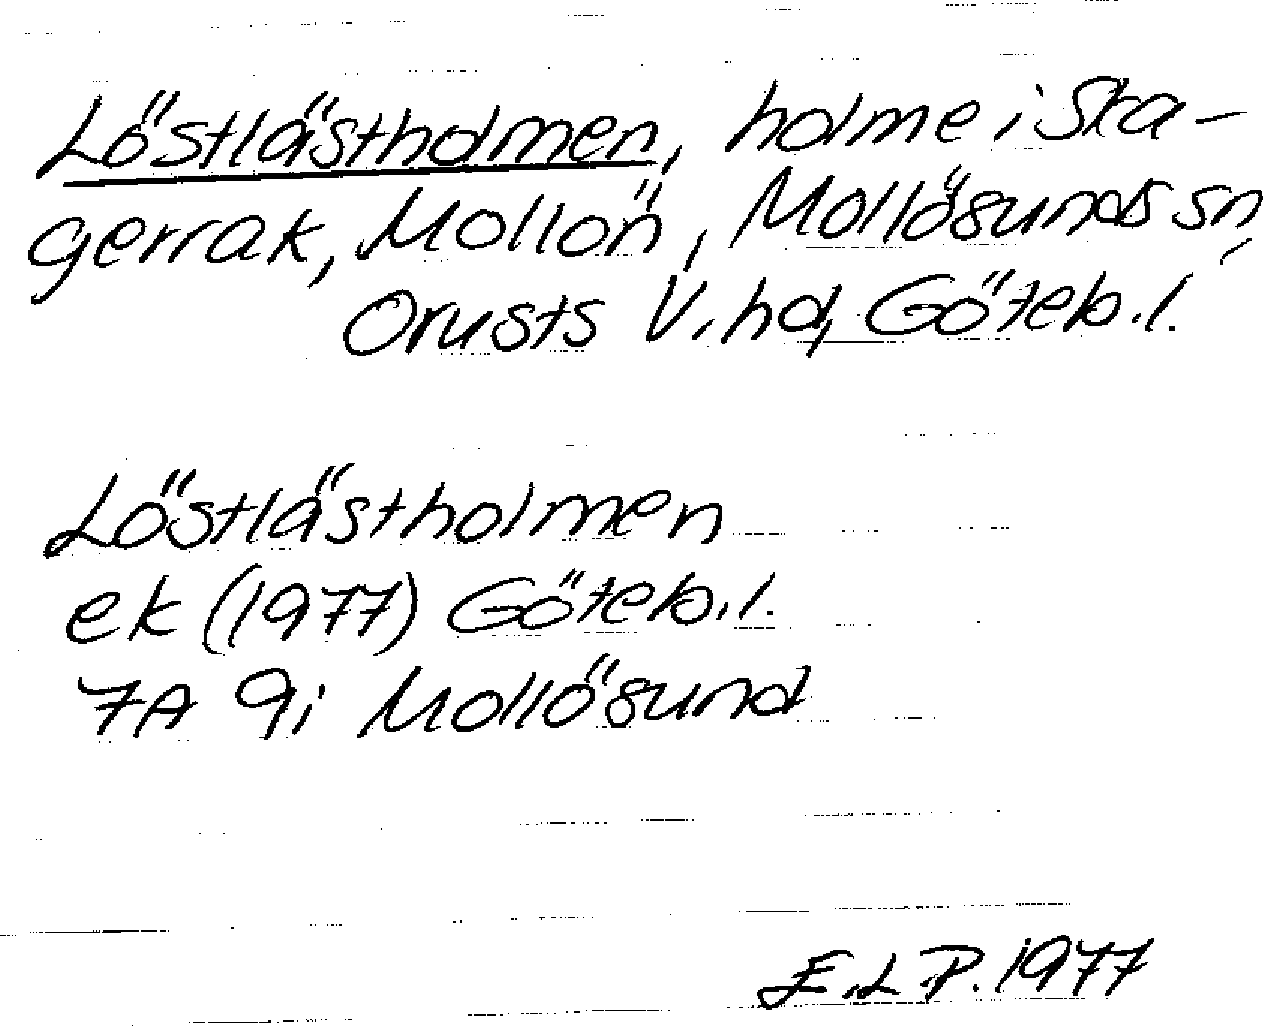 Löstlästholmen, holme i Ska-
gerrak, Mollön, Mollösunds sn,
Orusts V. hd, Göteb. l.
Löstlästholmen
ek (1977) Göteb. l.
7A 9i Mollösund
E.L.P. 1977